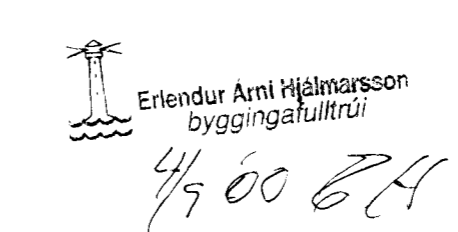 Erlendur Árni Hjálmarsson
byggingafulltrúi
4/9 00 EH